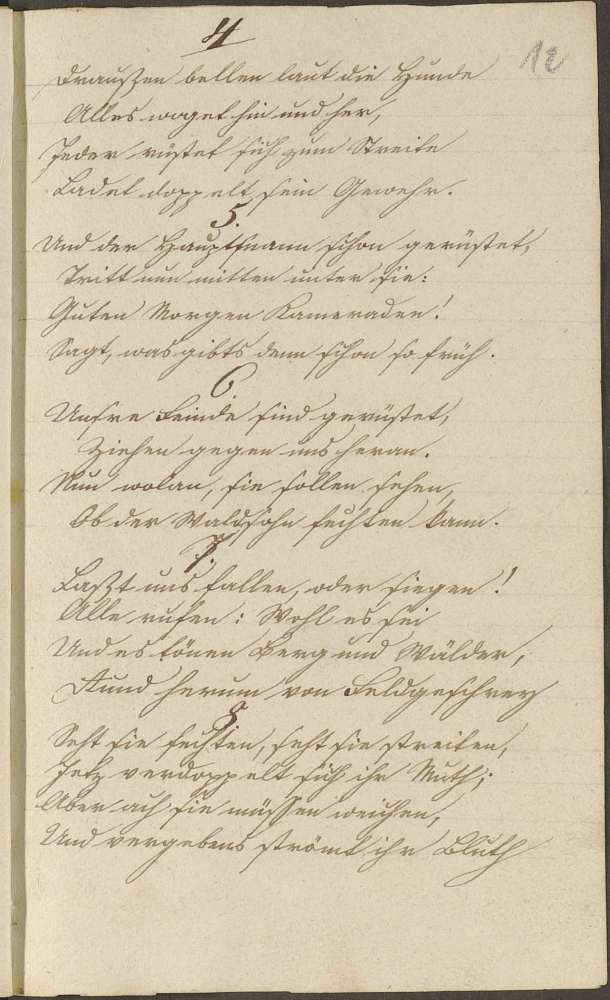 4
12
Draussen bellen laut die Hunde
Alles woget hin und her,
Jeder rüstet sich zum Streite
Ladet doppelt sein Gewehr.
5.
Und der Hauptmann schon gerüstet,
Tritt nun mitten unter sie:
Guten Morgen Kameraden!
Sagt, was gibts denn schon so früh.
6
Unsre Feinde sind gerüstet,
Ziehen gegen uns heran.
Nun wolan, sie sollen sehen,
Ob der Waldsohn fechten kann.
7.
Laszt uns fallen, oder siegen!
Alle rufen: Wohl es sei
Und es tönen Berg und Wälder,
Rund herum von Feldgeschrey
8
Seht sie fechten, seht sie streiten,
Jetz verdoppelt sich ihr Muth;
Aber ach sie müssen weichen,
Und vergebens strömt ihr Bluth